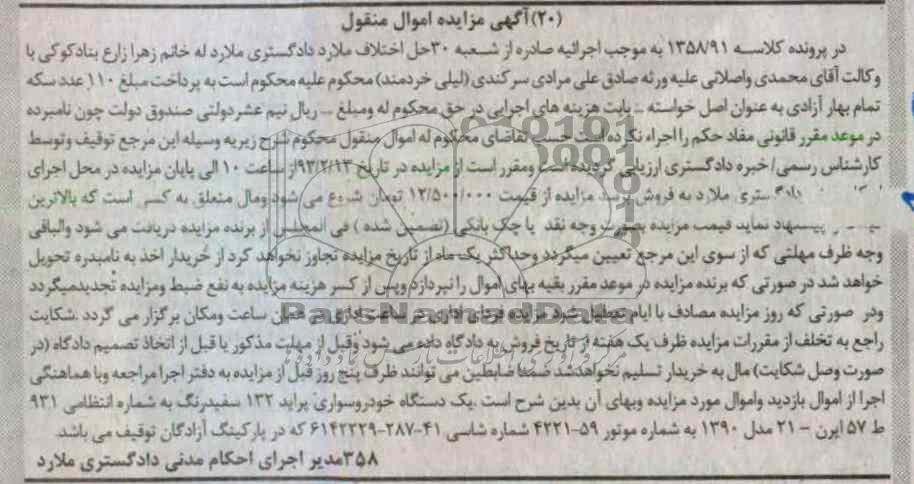 (۲۰) آگهی مزایده اموال منقول
در پرونده کلاسه ۱۳۵۸/۹۱ به موجب اجرائیه صادره از شعبه ۳۰ حل اختلاف ملارد دادگستری ملارد له خانم زهرا زارع بنادکوکی با
وکالت آقای محمدی واصلانی علیه ورثه صادق علی مرادی سرکندی (لیلی خردمند) محکوم علیه محکوم است به پرداخت مبلغ ۱۱۰ عدد سکه
تمام بهار آزادی به عنوان اصل خواسته _ بابت هزینه های اجرایی در حق محکوم له ومبلغ _ ریال نیم عشر دولتی صندوق دولت چون نامبرده
در موعد مقرر قانونی مفاد حکم را اجراء نکرده است حسب تقاضای محکوم له اموال منقول محکوم شرح زیر به وسیله این مرجع توقیف وتوسط
کارشناس رسمی/ خبره دادگستری ارزیابی گردیده است ومقرر است از مزایده در تاریخ ۹۳/۲/۱۳ از ساعت ۱۰ الی پایان مزایده در محل اجرای
دادگستری ملارد به فروش برسد مزایده از قیمت ۱۲/۵۰۰/۰۰۰ تومان شروع می شود ومال متعلق به کسی است که بالاترین
پیشنهاد نماید قیمت مزایده بصورت وجه نقد یا چک بانکی (تضمین شده) فی المجلس از برنده مزایده دریافت می شود والباقی
وجه ظرف مهلتی که از سوی این مرجع تعیین میگردد وحداکثر یک ماه از تاریخ مزایده تجاوز نخواهد کرد از خریدار اخذ به نامبدره تحویل
خواهد شد در صورتی که برنده مزایده در موعد مقرر بقیه بهای اموال را نپردازد وپس از کسر هزینه مزایده به نفع ضبط ومزایده تجدیدمیگردد
ودر صورتی که روز مزایده مصادف با ایام تعطیل شود مزایده فردای اداری در ساعت اداری در همان ساعت ومکان برگزار می گردد .شکایت
راجع به تخلف از مقررات مزایده ظرف یک هفته از تاریخ فروش به دادگاه داده می شود وقبل از مهلت مذکور یا قبل از اتخاذ تصمیم دادگاه (در
صورت وصل شکایت) مال به خریدار تسلیم نخواهدشد ضمنا ضابطین می توانند ظرف پنج روز قبل از مزایده به دفتر اجرا مراجعه وبا هماهنگی
اجرا از اموال بازدید واموال مورد مزایده وبهای آن بدین شرح است .یک دستگاه خودروسواری پراید ۱۳۲ سفیدرنگ به شماره انتظامی ۹۳۱
ط ۵۷ ایرن - ۲۱ مدل ۱۳۹۰ به شماره موتور ۵۹-۴۲۲۱ شماره شاسی ۴۱-۲۸۷-۶۱۴۲۲۲۹ که در پارکینگ آزادگان توقیف می باشد.
۳۵۸مدیر اجرای احکام مدنی دادگستری ملارد
ParsNamadData